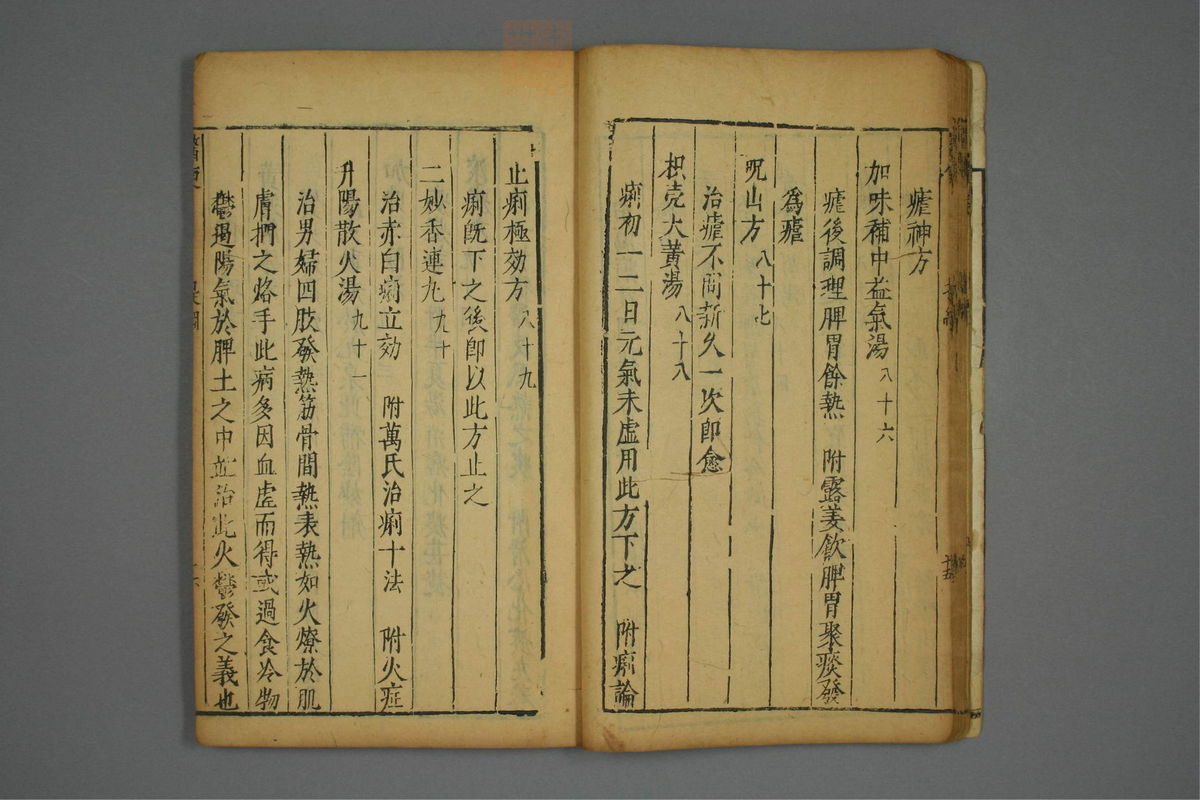 瘧神方
加味補中益氣湯 八十六
瘧後調理脾胃餘熱 附露姜飲脾胃聚痰發
為瘧
咒山方 八十七
治瘧不問新久一次即愈
枳壳大黄湯 八十八
痢初一二日元氣未虚用此方下之 附痢論
止痢極効方 八十九
痢既下之後即以此方止之
二妙香連丸 九十
治赤白痢立効 附萬氏治痢十法 附火症
升陽散火湯 九十一
治男婦四肢發熱筋骨間熱表熱如火燎於肌
膚捫之烙手此病多因血虚而得或過食冷物
鬱遏陽氣於脾土之中並治此火鬱發之義也